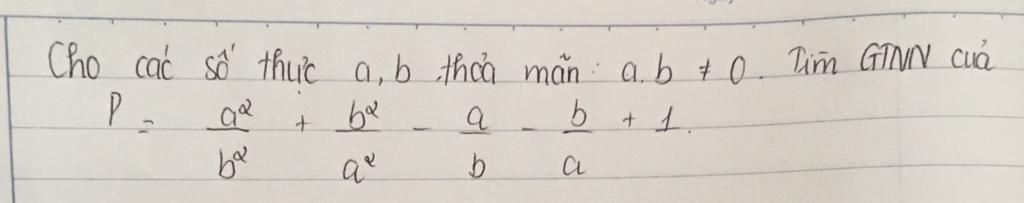 Cho các số thực a, b thỏa mãn: a.b ≠ 0. Tìm GTNN của
P = a²/b² + b²/a² - a/b - b/a + 1.